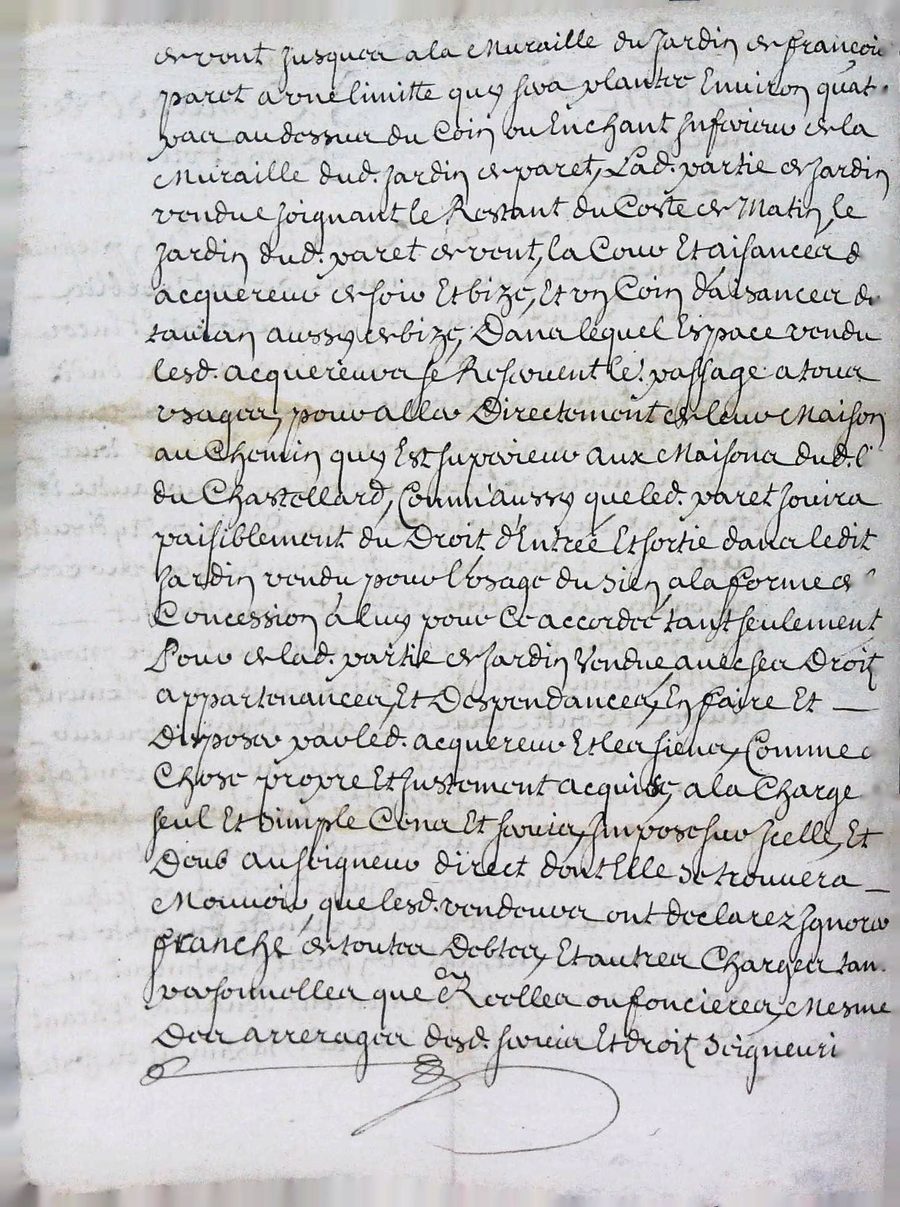 de vent Jusques a la Muraille du Jardin de françois
paret a vne limitte quy sera plantée Environ quat
pas au dessus du Coin ou Enchant Inferieur de la
Muraille dud. Jardin de paret, Lad. partie de Jardin
vendue Joignant le Restant du Coste de Matin, le
Jardin dud. paret de vent, la Cour Et aisances d
acquereur de soir Et bize, Et vn Coin daisances de
aussy de bize, Dans lequel Espace vendu
lesd. acquereurs se Reservent le passage a tous
vsages, pour aller Directement de leur Maison
au Chemin quy Est superieur aux Maisons dud. l
du Chastellard, Comm'aussy que led. paret Jouira
paisiblement du Droit d'Entrée Et sortie dans ledit
Jardin vendu pour l'vsage du sien, a la forme de
Concession a luy pour Ce accordée tant seulement
Pour de lad. partie de Jardin Vendue, avec ses Droit
appartenances, Et Despendances, En faire Et
Disposer par led. acquereur Et les siens, Comme
Chose propre Et Justement acquise, a la Charge
seul Et simple Cens Et servis, Impose sur Icelle, Et
Deub au seigneur direct dont Elle se trouvera
Mouvoir, que lesd. vendeurs ont declarez Ignorer
franche de toutes Debtes, Et autres Charges tan
personnelles que Reelles ou foncieres, Mesme
Des arrerages desd. servis Et droit seigneuri